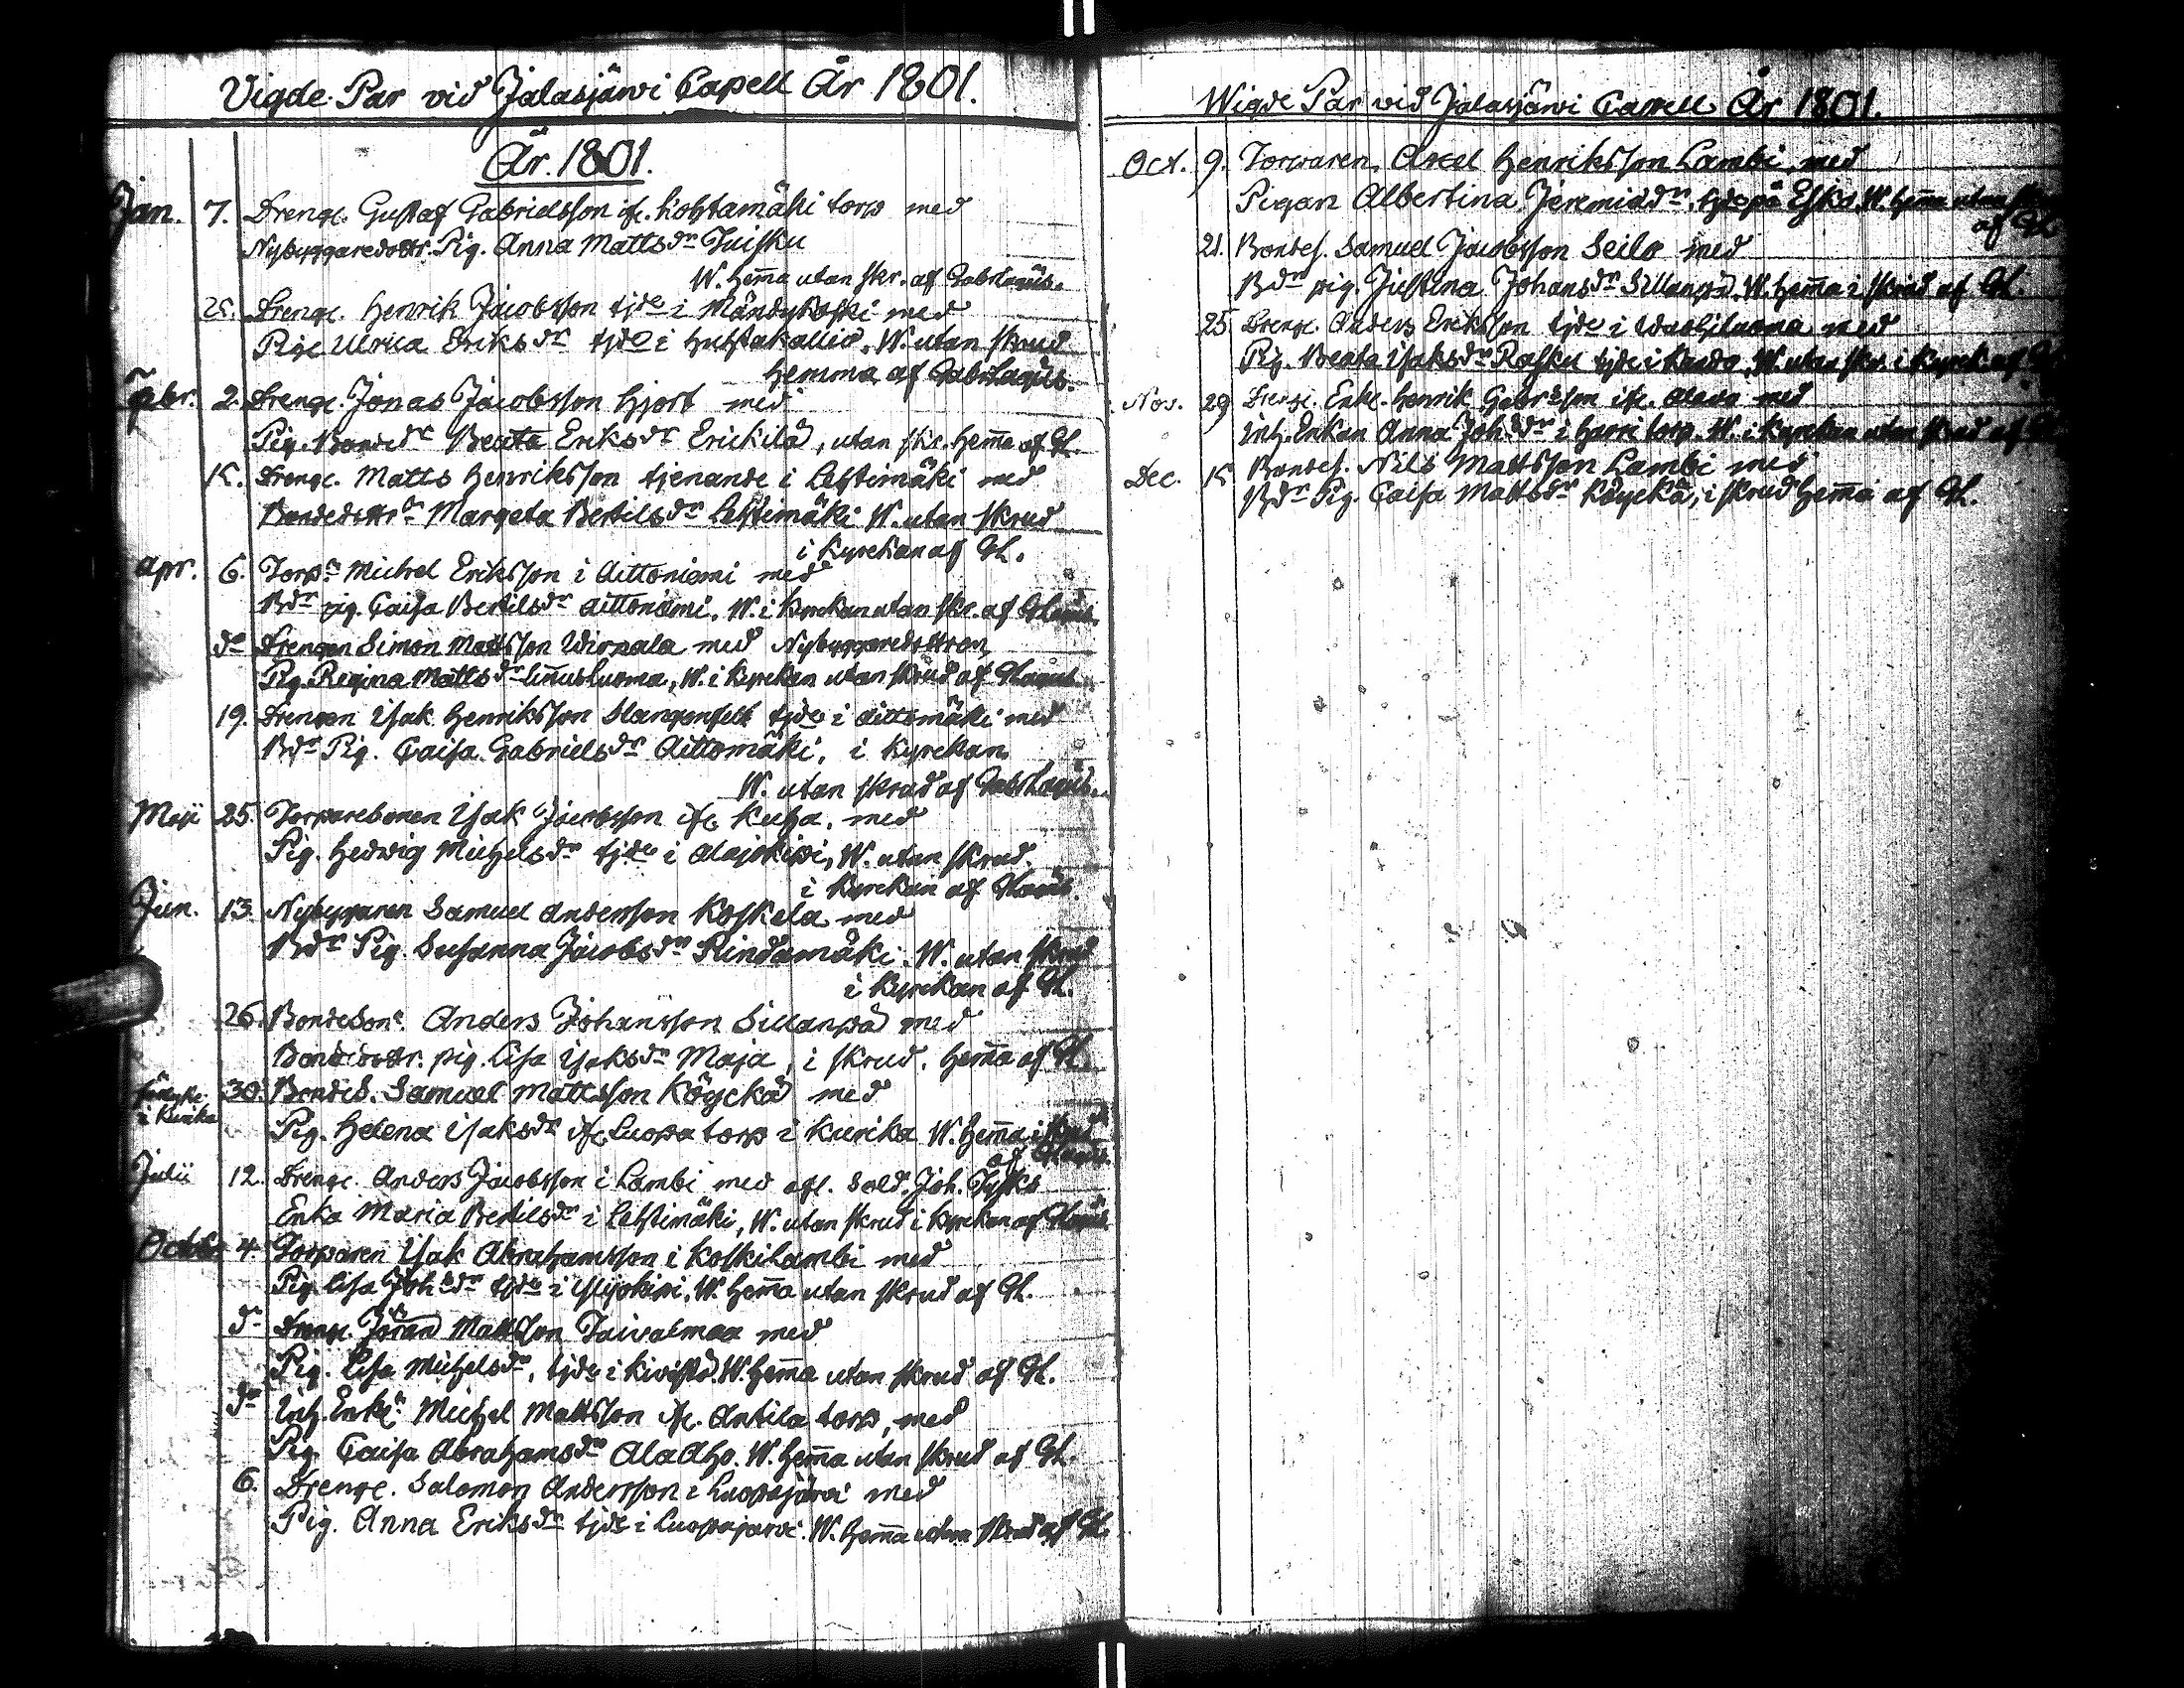 Vigde Par vid Jalasjärvi Capell År 1801.
År. 1801.
Jan. 7. Drenge. Gustaf Gabrielsson ifr. Kohtamäki torp med
Nybyggaredottr. Pig. Anna Matts dr Tuisku
W. hem̄a utan skr. af Gabr Lagüs.
25. Drenge. Henrik Jacobsson tjde i Mändykoski med
Pige Ulrica Eriks dr tjde i Huhtakallio. W. utan skrud
hemma af Gabr Lagüs.
2. Drenge. Jonas Jacobsson Hjort med
Pig. Bonde dr Beata Eriks dr Erickilä, utan skr. hem̄a af GL.
15. Drenge. Matts Henriksson tjenande i Lehtimäki med
Bondedottr Margeta Bertils dr Lehtimäki W. utan skrud
i Kyrckan af GL.
Apr. 6. Torp. Michel Eriksson i Aittoniemi med
Bdr pig. Caisa Bertils dr Aittoniemi. W. i Kyrckan utan skr. af GLagüs.
do Drengen Simon Mattsson Wirpala med Nybyggaredottren
Pig. Regina Matts dr Linnusluoma, W. i Kyrckan utan skrud af GLagüs.
19. Drengen Isak Henriksson tjde i Aittomäki med
Bdr Pig. Caisa Gabriels dr Aittomäki, i Kyrckan
W. utan skrud af Gabr Lagüs.
Maji 25. Torparesonen Isak Jacobsson ifr. Kuha. med
Pig. Hedwig Michels dr tjde i Alajokipi, W. utan skrud.
i Kyrckan af GLagüs.
Jun. 13. Nybyggaren Samuel Andersson Koskela med
Bdr Pig. Susanna Jacobs dr Rindamäki. W. utan skrud
i Kyrckan af GL.
26. Bondeson Anders Johansson Sillanpä med
Bondedottr. pig. Lisa Isaks dr Maja, i skrud. hem̄a af GL.
i Kurika 30. Bondes. Samuel Mattsson Köyckä med
Pig. Helena Isaks dr ifr. Luopa torp i Kurika W. hem̄a i skrud
af GLagüs.
Julii 12. Drenge. Anders Jacobsson i Lambi med afl. Sold. Joh. Tysks
Enka Maria Bertils dr i Lehtimäki, W. utan skrud i Kyrckan af GLagüs
Octob. 4. Torparen Isak Abrahamsson i Koskilambi med
Pig. Lisa Joh. dr tjde i Ylijokipi. W. hem̄a utan skrud af GL.
do Drenge. Jöran Mattsson Taivalmaa med
Pig. Lisa Michels dr, tjde i Kivistö. W. hem̄a utan skrud af GL.
do Inh. Enkl. Michel Mattsson ifr. Antila torp, med
Pig. Caisa Abrahams dr AlaAho. W. hem̄a utan skrud af GL.
6. Drenge. Salomon Andersson i Luopajärvi med
Pig. Anna Eriks dr tjde i Luopajarvi. W. hem̄a utan skrud af GL.
Wigde Par vid Jalasjärvi Capell År 1801.
Oct. 9. Torparen. Axel Henriksson Lambi, med
Pigan Albertina Jeremiæ dr. tjde på Esko. W. hem̄a utan
af GL
21. Bondes. Samuel Jacobsson Seilo med
Bdr pig. Justina Johans dr Sillanpä. W. hem̄a i skrud af GL.
25. Drenge. Anders Eriksson tjde i med
Pig. Beata Isaks dr Rasku tjde i W. utan skr. i Kyrck. af
Nov. 29 Drenge. Enkl. Henrik Gabrielsson ifr. med
Inh. Enkan Anna Joh. dr i Harri torp. W. i Kyrckan utan skrud af
Dec. 15. Bondes. Nils Mattsson Lambi med
Bdr Pig. Caisa Matts dr Köyckä, i skrud hem̄a af GL.